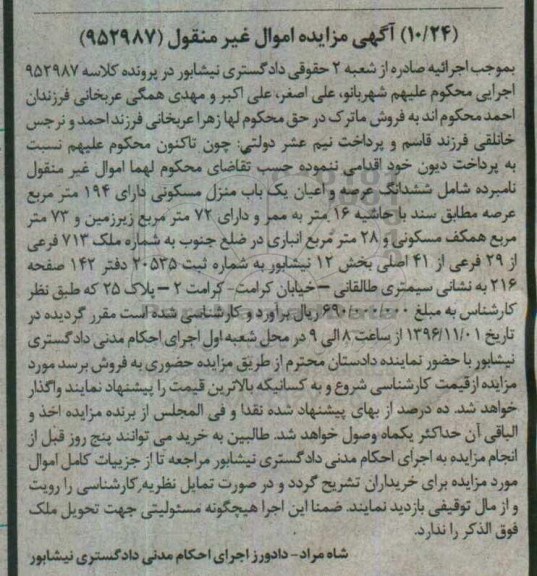 (۱۰/۲۴) آگهی مزایده اموال غیر منقول (۹۵۲۹۸۷)
بموجب اجرائیه صادره از شعبه ۲ حقوقی دادگستری نیشابور در پرونده کلاسه ۹۵۲۹۸۷
اجرایی محکوم علیهم شهربانو، علی اصغر، علی اکبر و مهدی همگی عربخانی فرزندان
احمد محکوم اند به فروش ماترک در حق محکوم لها زهرا عربخانی فرزند احمد و نرجس
خانلقی فرزند قاسم و پرداخت نیم عشر دولتی: چون تاکنون محکوم علیهم نسبت
به پرداخت دیون خود اقدامی ننموده حسب تقاضای محکوم لهما اموال غیر منقول
نامبرده شامل ششدانگ عرصه و اعیان یک باب منزل مسکونی دارای ۱۹۴ متر مربع
عرصه مطابق سند با حاشیه ۱۶ متر به ممر و دارای ۷۲ متر مربع زیرزمین و ۷۳ متر
مربع همکف مسکونی و ۲۸ متر مربع انباری در ضلع جنوب به شماره ملک ۷۱۳ فرعی
از ۲۹ فرعی از ۴۱ اصلی بخش ۱۲ نیشابور به شماره ثبت ۲۰۵۳۵ دفتر ۱۴۲ صفحه
۲۱۶ به نشانی سیمتری طالقانی – خیابان کرامت- کرامت ۲ – پلاک ۲۵ که طبق نظر
کارشناس به مبلغ ۶۹۰/۰۰۰/۰۰۰ ریال برآورد و کارشناسی شده است مقرر گردیده در
تاریخ ۱۳۹۶/۱۱/۰۱ از ساعت ۸ الی ۹ در محل شعبه اول اجرای احکام مدنی دادگستری
نیشابور با حضور نماینده دادستان محترم از طریق مزایده حضوری به فروش برسد مورد
مزایده از قیمت کارشناسی شروع و به کسانیکه بالاترین قیمت را پیشنهاد نمایند واگذار
خواهد شد. ده درصد از بهای پیشنهاد شده نقدا و فی المجلس از برنده مزایده اخذ و
الباقی آن حداکثر یکماه وصول خواهد شد. طالبین به خرید می توانند پنج روز قبل از
انجام مزایده به اجرای احکام مدنی دادگستری نیشابور مراجعه تا از جزییات کامل اموال
مورد مزایده برای خریداران تشریح گردد و در صورت تمایل نظریه کارشناسی را رویت
و از مال توقیفی بازدید نمایند. ضمنا این اجرا هیچگونه مسئولیتی جهت تحویل ملک
فوق الذکر را ندارد.
شاه مراد- دادورز اجرای احکام مدنی دادگستری نیشابور